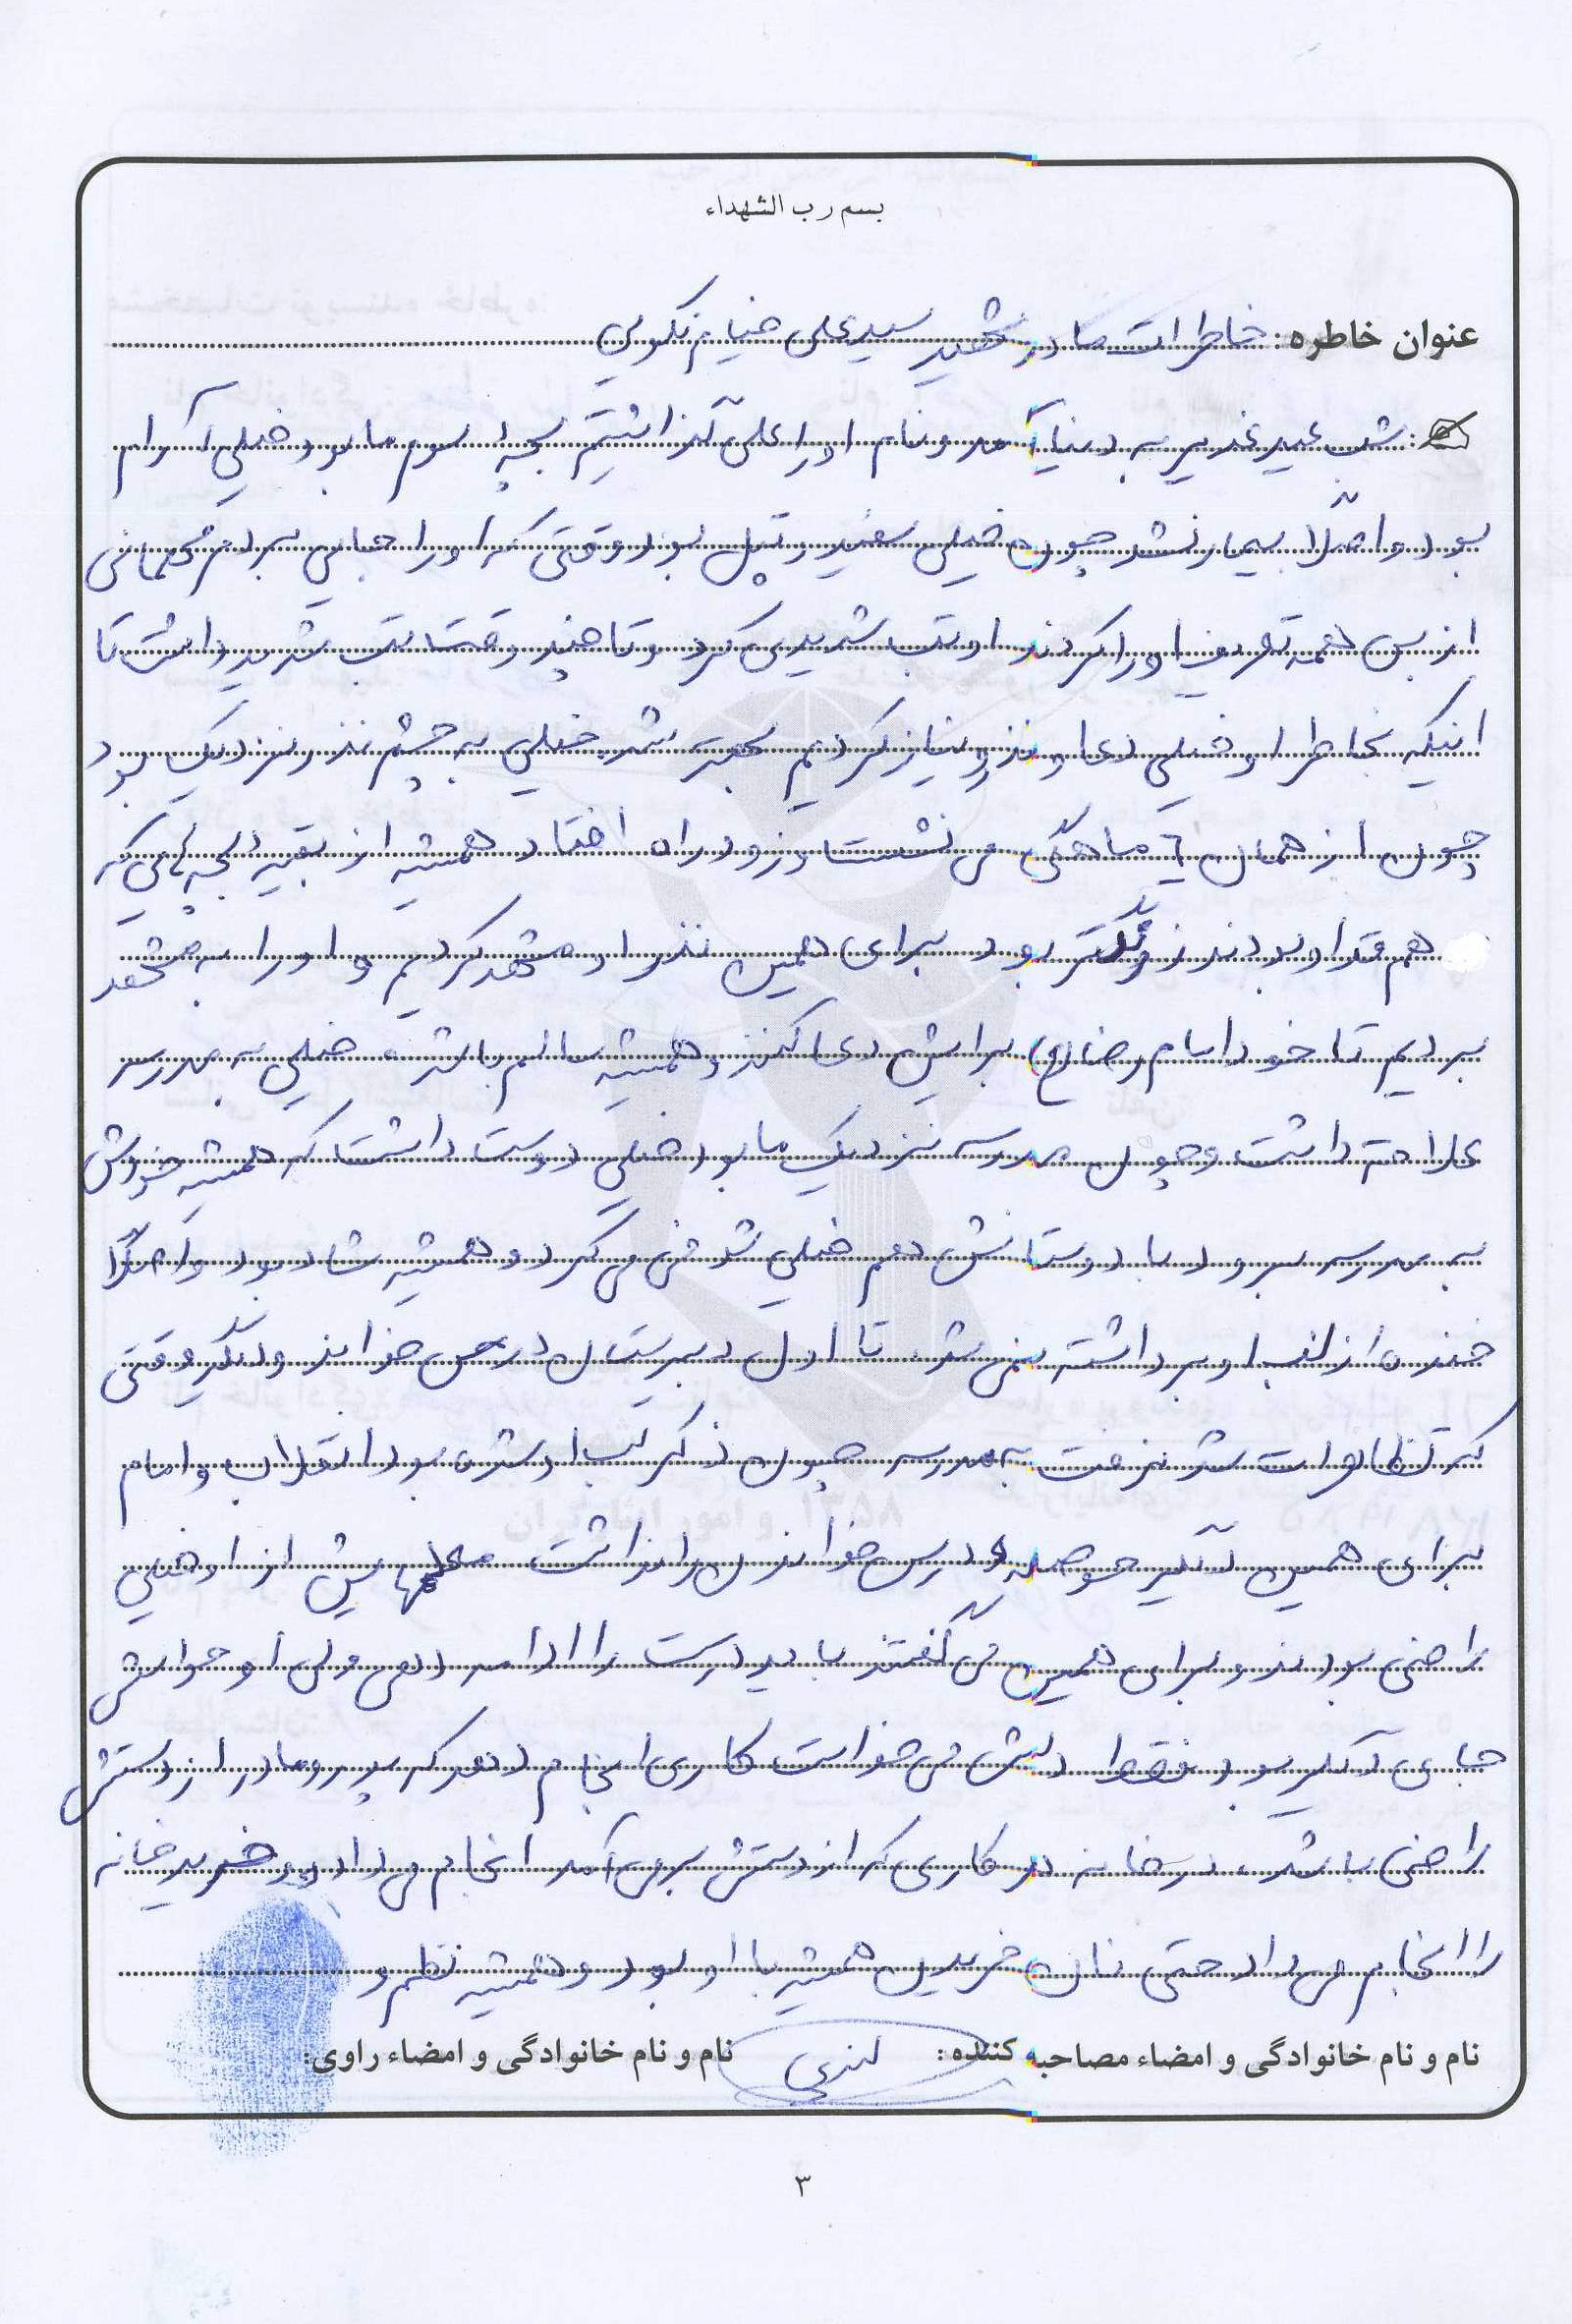 بسم رب الشهداء
عنوان خاطره: خاطرات مادر شهید سیدعلی خیام نکویی
: شب عید غدیر به دنیا آمد و نام او را علی گذاشتیم بچه سوم ما بود خیلی آرام
بود و اصلاً بیمار نشد چون خیلی سفید و تپل بود وقتی که او را جایی بردم مهمانی
از بس همه تعریف او را کردند او تب شدیدی کرد و تا چند وقت تب شدید داشت تا
اینکه بخاطر او خیلی دعا و نذر و نیاز کردیم بهتر شد. خیلی به چشم نذر نزدیک بود
چون از همان ۶ ماهگی می نشست و زود راه افتاد همیشه از بقیه بچه هایی که
هم قد او بودند زرنگتر بود برای همین نذر او مشهد کردیم و او را به مشهد
بردیم تا خود امام رضا (ع) برایش دعا کند و همیشه سالم باشد. خیلی به مدرسه
علاقه داشت و چون مدرسه نزدیک ما بود خیلی دوست داشت که همیشه خودش
به مدرسه برود با دوستانش هم خیلی شوخی می کرد و همیشه شاد بود و اصلاً
خنده از لب او برداشته نمی شد. تا اول دبیرستان درس خواند و دیگر وقتی
که تظاهرات شد نرفت به مدرسه چون ذکر لب او شده بود انقلاب و امام
برای همین دیگر حوصله درس خواندن را نداشت معلمهایش از او خیلی
راضی بودند و برای همین می گفتند باید درست را ادامه دهی ولی او حواسش
جای دیگر بود فقط دلش می خواست کاری انجام دهد که پدر و مادر از دستش
راضی باشد. در خانه هر کاری که از دستش برمی آمد انجام می داد و خرید خانه
را انجام می داد حتی نان خریدن همیشه با او بود و همیشه نظم و
نام و نام خانوادگی و امضاء مصاحبه کننده: نام و نام خانوادگی و امضاء راوی:
۳